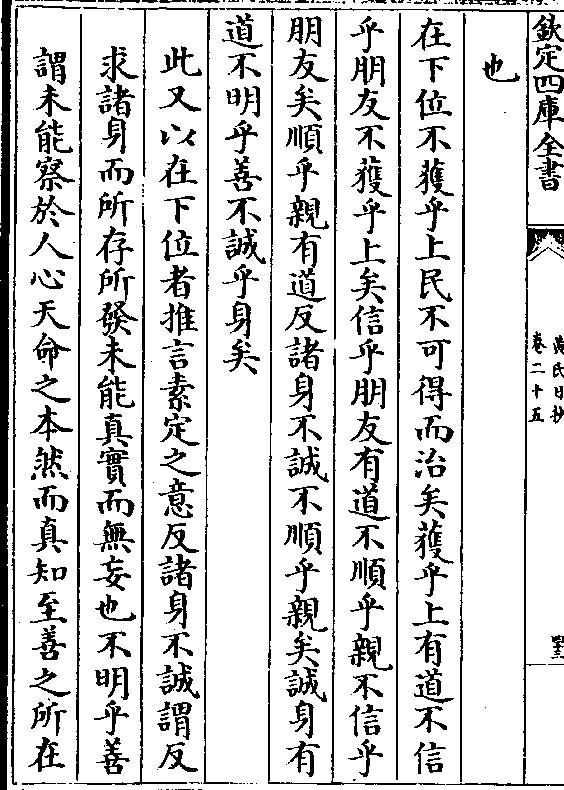 欽定四庫全書
黄氏日抄
卷二十五
也
在下位不獲乎上民不可得而治矣獲乎上有道不信
乎朋友不獲乎上矣信乎朋友有道不順乎親不信乎
朋友矣順乎親有道反諸身不誠不順乎親矣誠身有
道不明乎善不誠乎身矣
此又以在下位者推言素定之意反諸身不誠謂反
求諸身而所存所發未能真實而無妄也不明乎善
謂未能察於人心天命之本然而真知至善之所在